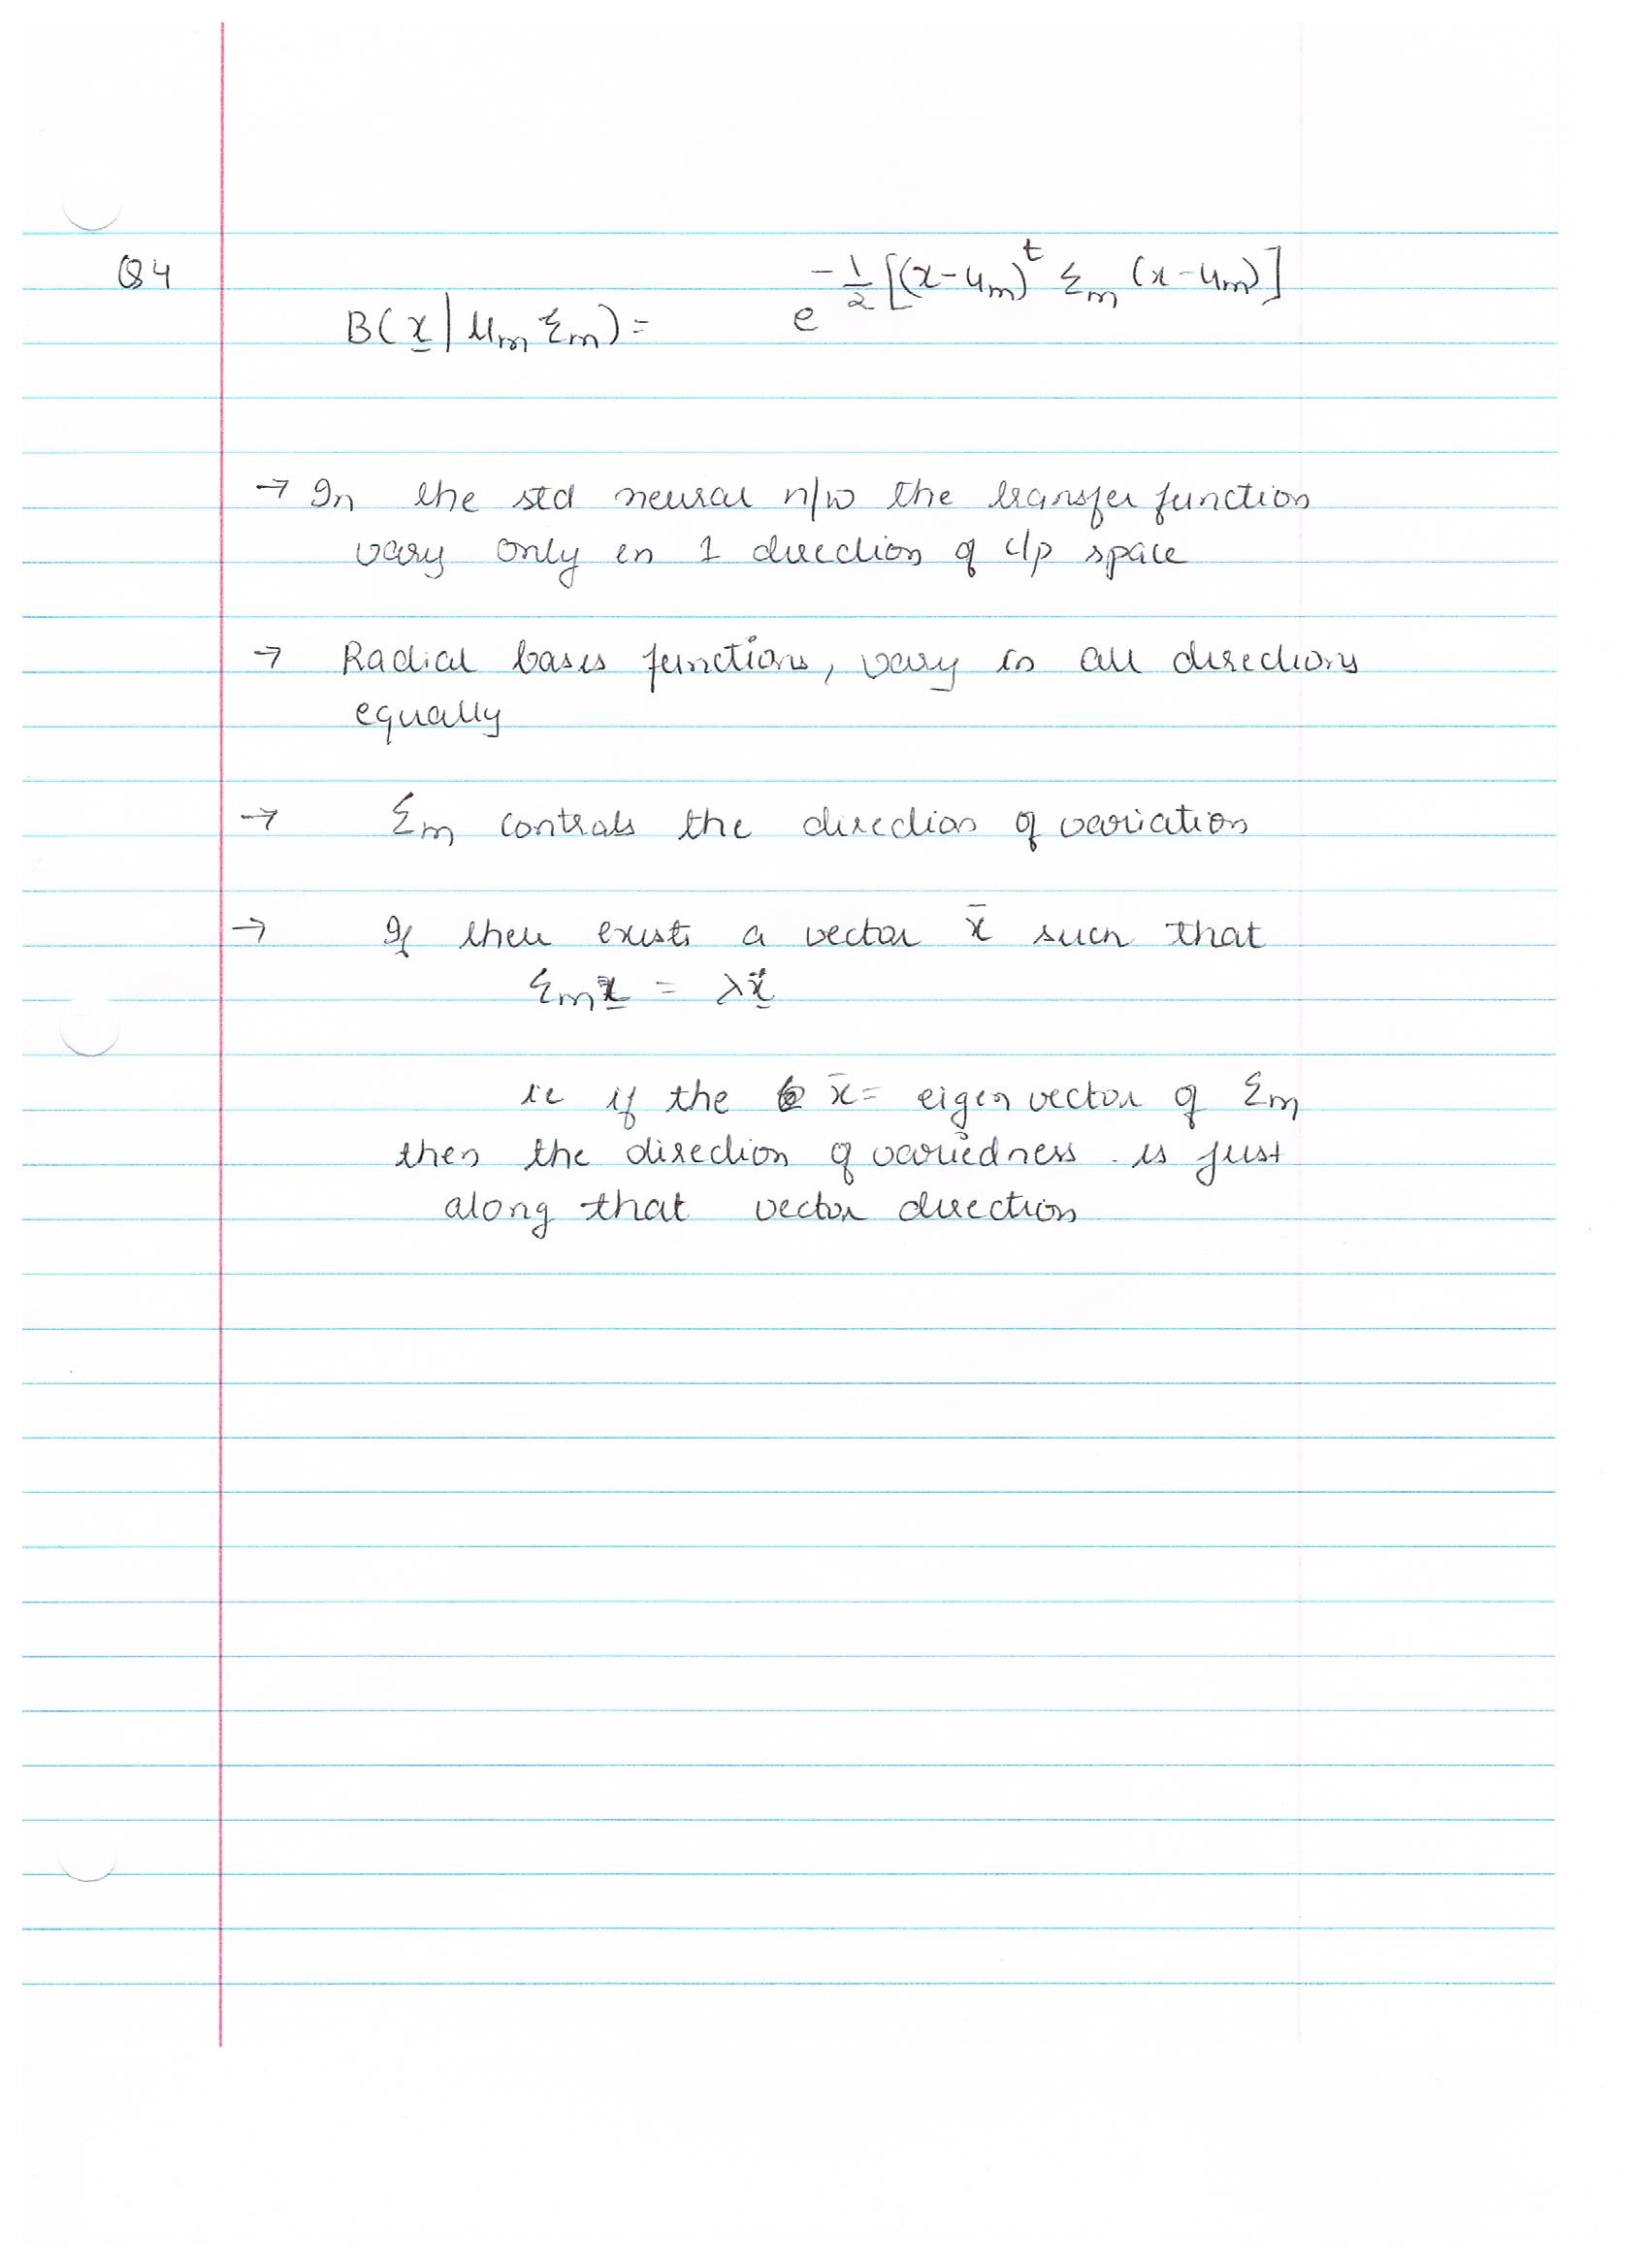 Q4
B(x | μm Σm) = e^{-1/2 [(x-μm)^t Σm (x-μm)]}
→ In the std neural n/w the transfer function
vary only in 1 direction of i/p space
→ Radial basis functions, vary in all directions
equally
→ Σm controls the direction of variation
→ If there exists a vector x̄ such that
Σm x = λx
ie if the x̄ = eigen vector of Σm
then the direction of variedness is just
along that vector direction